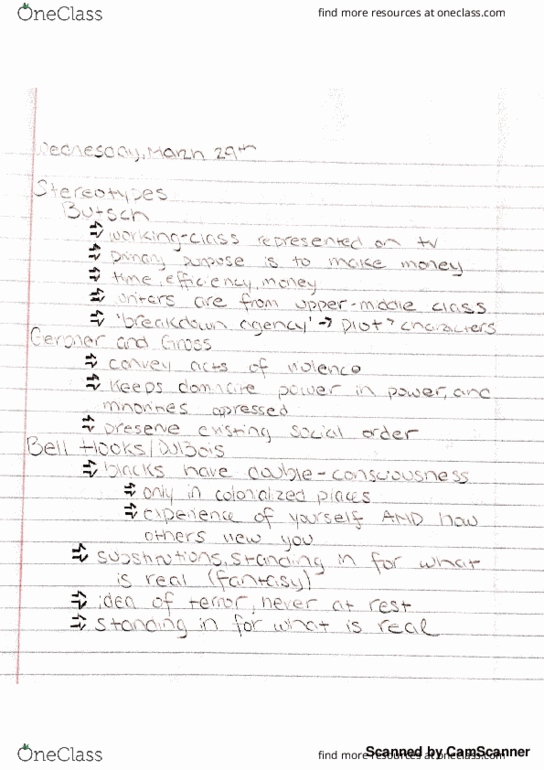 OneClass
find more resources at oneclass.com
Wednesday, March 29th
Stereotypes
Butsch
⇒ working-class represented on tv
⇒ primary purpose is to make money
⇒ time, efficiency, money
⇒ writers are from upper-middle class
⇒ 'breakdown agency' → plot > characters
Gerbner and Gross
⇒ convey acts of violence
⇒ keeps dominate power in power, and
minorities opressed
⇒ preserve existing social order
Bell Hooks/DuBois
⇒ blacks have double-consciousness
⇒ only in colonialized places
⇒ experience of yourself AND how
others view you
⇒ substitutions, standing in for what
is real (fantasy)
⇒ idea of terror, never at rest
⇒ standing in for what is real
OneClass
find more resources at oneclass.com
Scanned by CamScanner